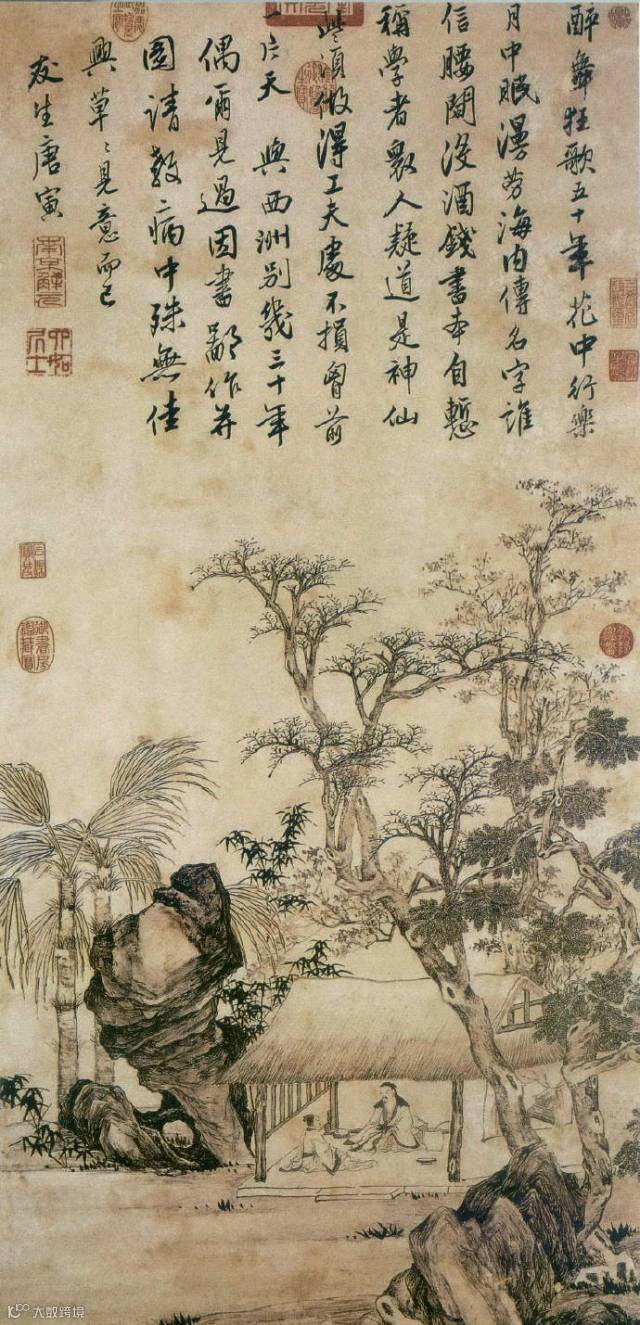 醉舞狂歌五十年花中行樂
月中眠漫勞海內傳名字誰
信腰間沒酒錢書本自慙
稱學者衆人疑道是神仙
些須做得工夫處不損胷前
一片天 與西洲別幾三十年
偶爾見過因書鄙作并
圖請教病中殊無佳
興草〻見意而已
友生唐寅
南京解元
六如居士
大数跨境